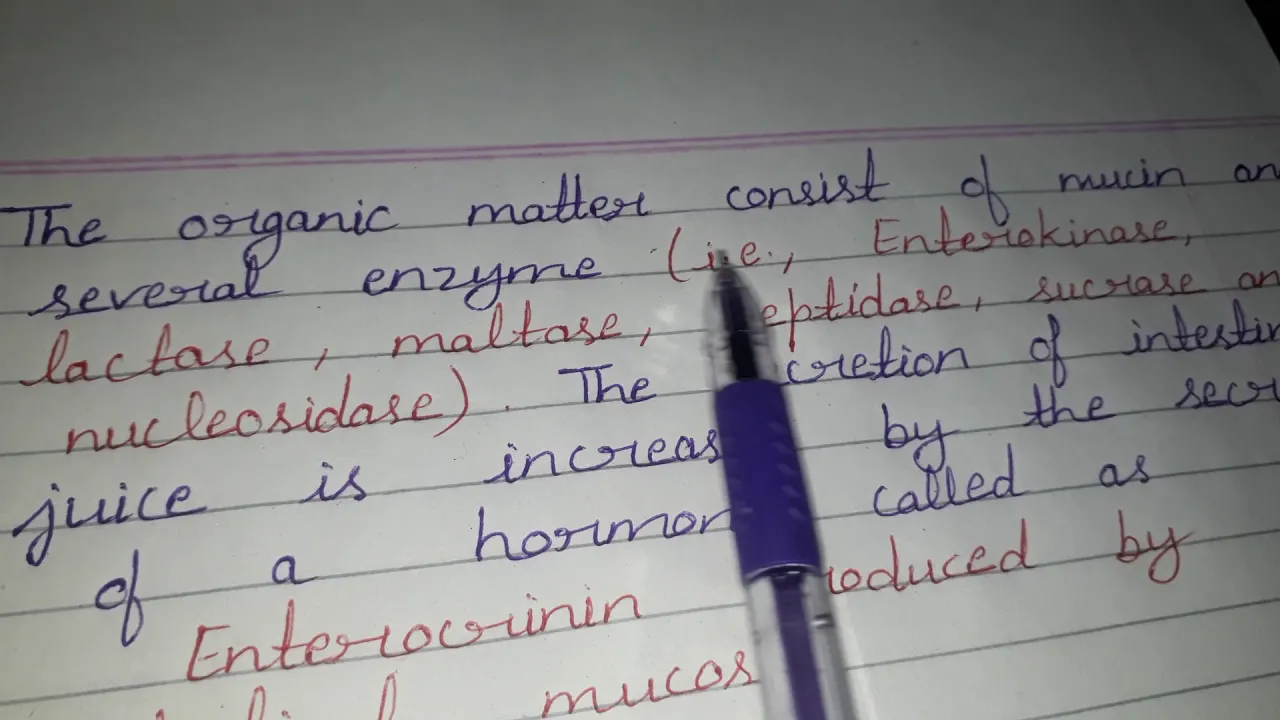 The organic matter consist of mucin an
several enzyme (i.e., Enterokinase,
lactase, maltase, eptidase, sucrase an
nucleosidase). The cretion of intestin
juice is increas by the secr
of a hormon called as
Enterocrinin oduced by
mucos